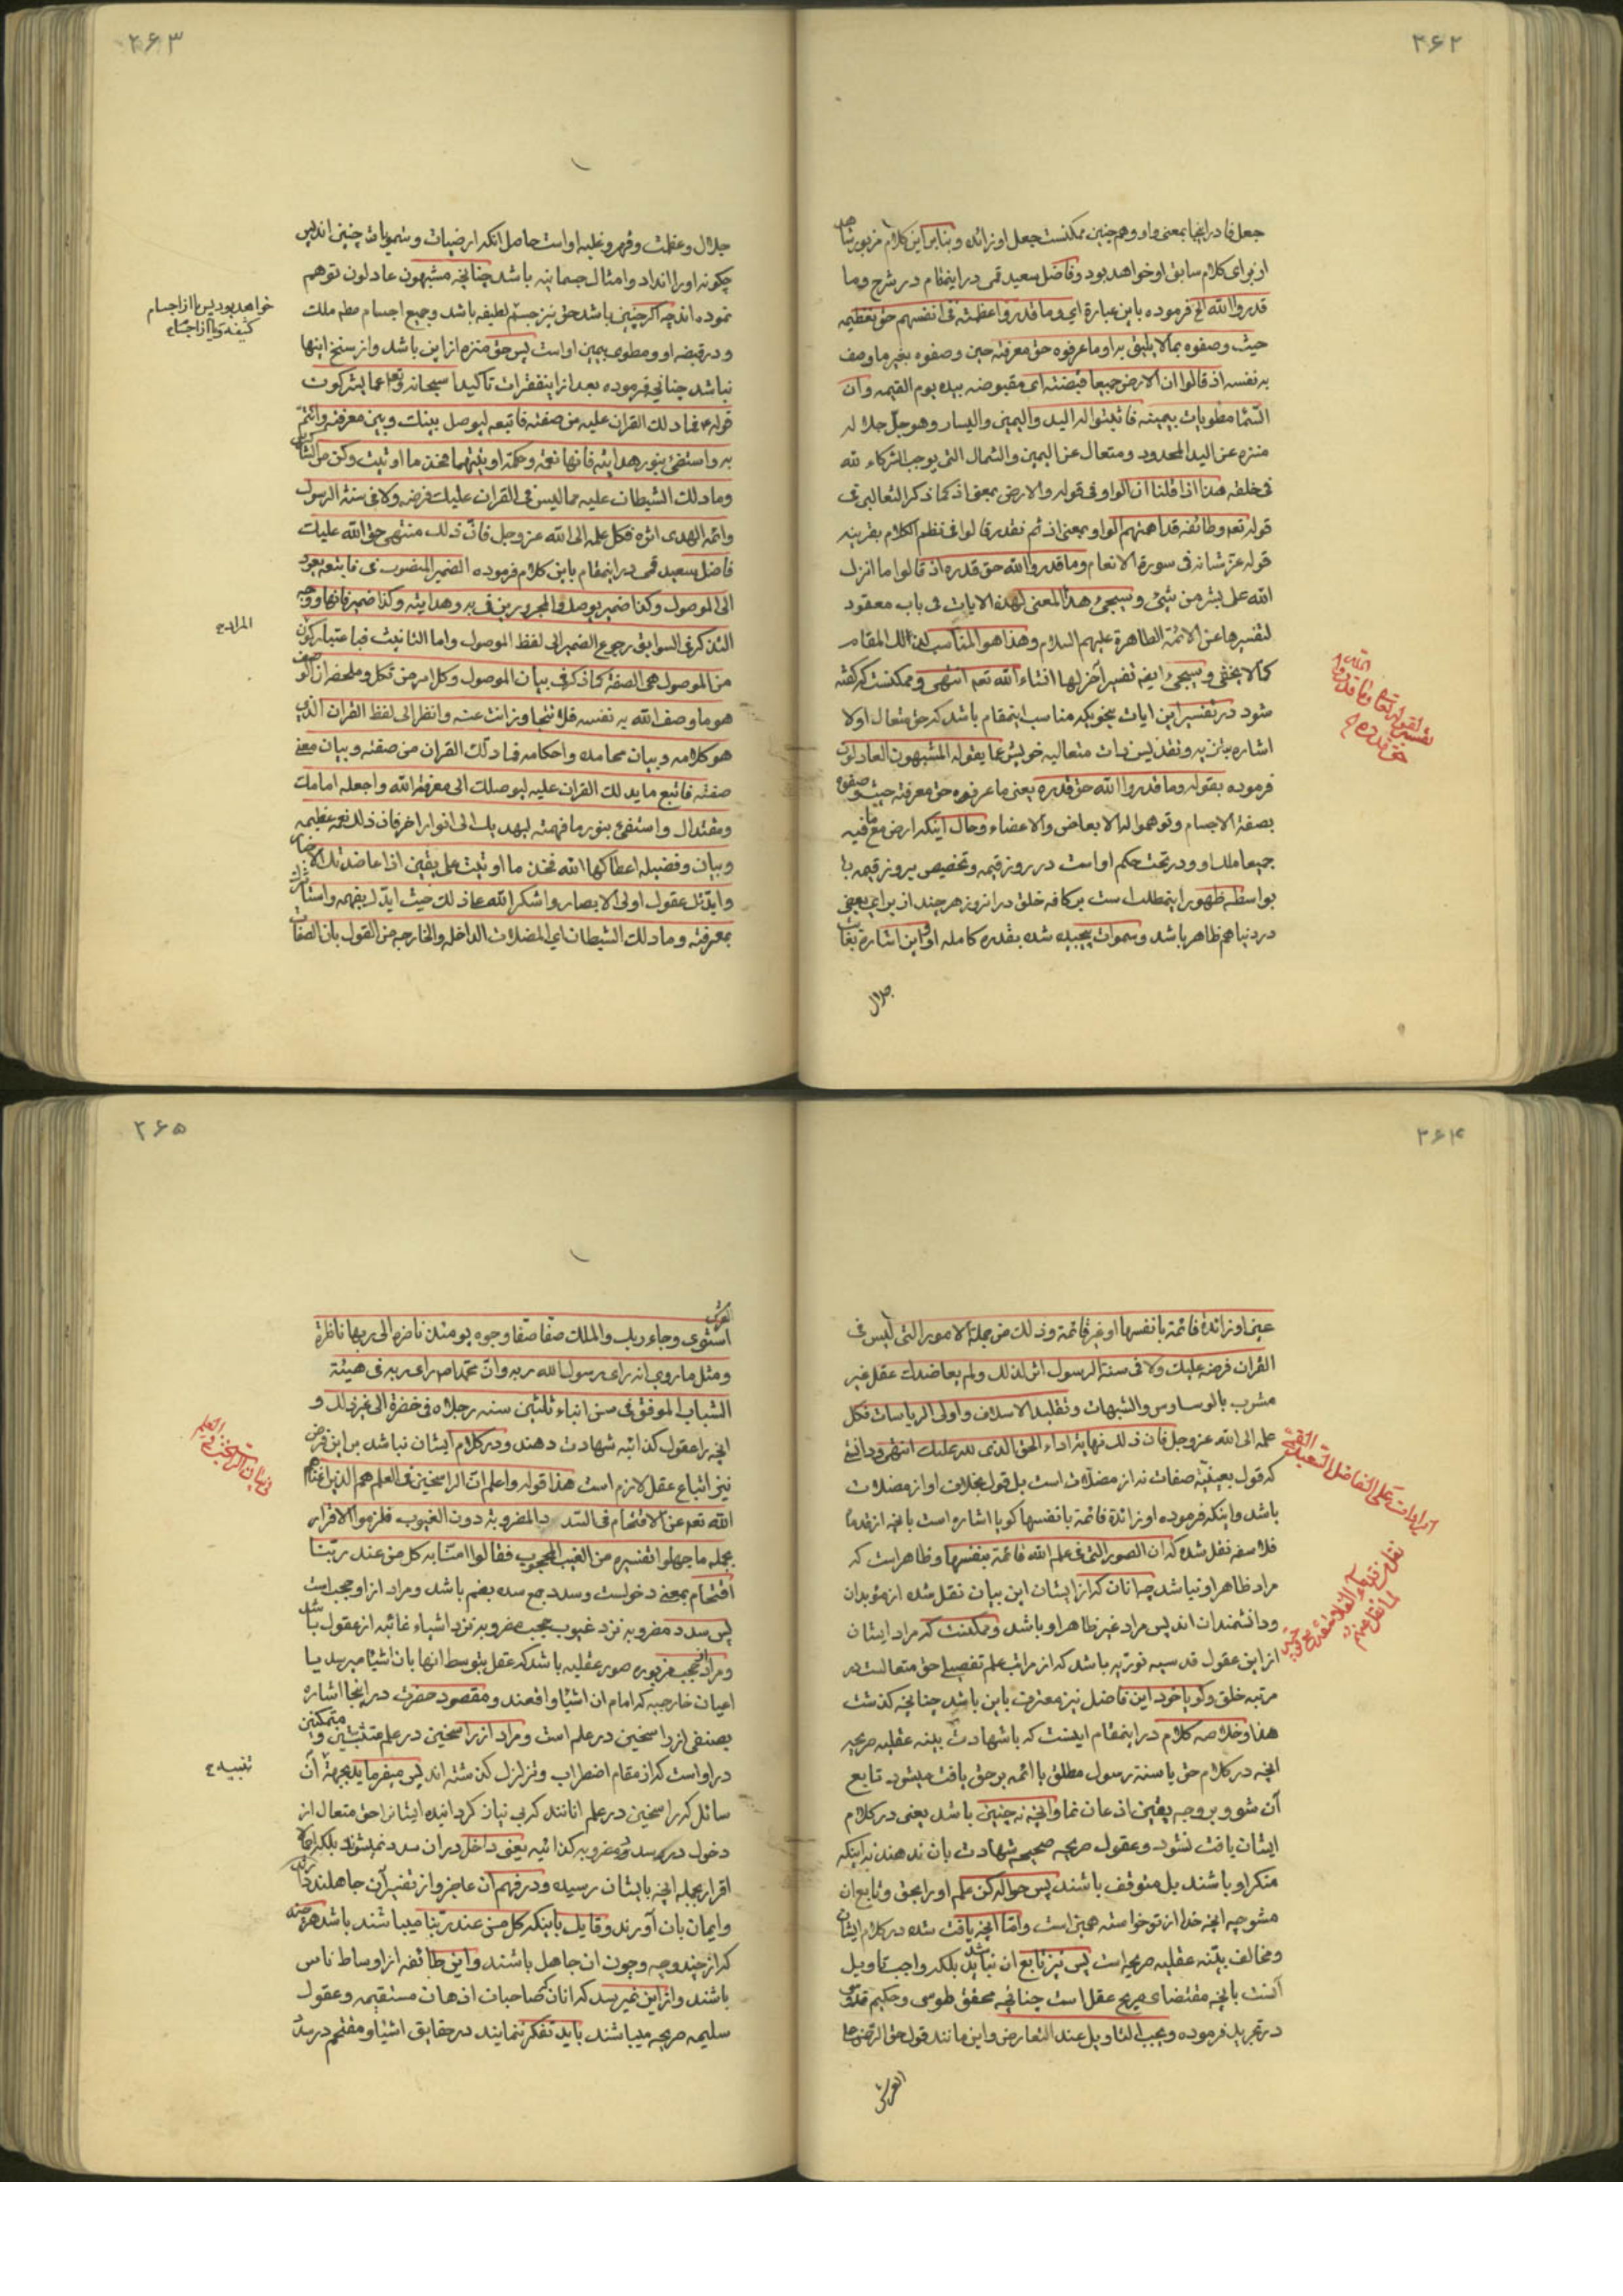 ۲۶۲
جعل فا در اینجا بمعنی واو و همچنین ممکنست جعل او زائده و بنابر این کلام مزبور شاهد
از برای کلام سابق او خواهد بود و فاضل سعید قمی در اینمقام در شرح وما
قدروا الله الخ فرموده باین عبارة ای وما قدروا عظمته فی انفسهم حق تعظیمه
حیث وصفوه بما لا یلیق به او ما عرفوه حق معرفته حین وصفوه بغیر ما وصف
به نفسه اذ قالوا ان الارض جمیعا قبضته ای مقبوضه بیده یوم القیمه وان
السما مطویات بیمینه فاثبتوا له الید والیمین والیسار وهو جل جلاله
منزه عن الید المحدود ومتعال عن الیمین والشمال التی یوجب الشرکاء لله
فی خلقه هذا اذا قلنا ان الواو فی قوله والارض بمعنی اذ کما ذکر الثعالبی فی
قوله تعه وطائفه قد اهمتهم الواو بمعنی اذ ثم نقدر قالوا فی نظم الکلام بقرینه
قوله عز شانه فی سورة الانعام وما قدروا الله حق قدره اذ قالوا ما انزل
الله علی بشر من شیئ وسیجیء هذا المعنی لهذه الایات فی باب معقود
لتفسیرها عن الائمة الطاهرة علیهم السلام وهذا هو المناسب لذالک المقام
کما لا یخفی وسیجیء ایضه تفسیر آخر لها انشاء الله تعه انتهی و ممکنست که گفته
شود در تفسیر این ایات بنحویکه مناسب اینمقام باشد که حق متعال اولا
اشاره بتنزیه و تقدیس ذات متعالیه خویش عما یقوله المشبهون العادلون
فرموده بقوله وما قدروا الله حق قدره یعنی ما عرفوه حق معرفته حیث وصفوه
بصفة الاجسام وتوهموا له الابعاض والاعضاء و حال اینکه ارض مع ما فیه
جمیعا ملک او و در تحت حکم او است در روز قیمه و تخصیص بروز قیمه یا
بواسطه ظهور اینمطلب است بر کافه خلق در انروز هر چند از برای بعضی
در دنیا هم ظاهر باشد و سموات پیچیده شده بقدره کامله او و این اشارة بغایت
جلال
حق قدره
۲۶۳
جلال و عظمت و قهر و غلبه او است حاصل انکه ارضیات و سمویات چنین اند پس
چگونه او را انداد و امثال جسمانیه باشد چنانچه مشبهون عادلون توهم
نموده اند چه اگر چنین باشد حق نیز جسم لطیف باشد و جمیع اجسام مطه ملک
و در قبضه او و مطوی بیمین او است پس حق منزه از این باشد و از سنخ اینها
نباشد چنانچه فرموده بعد از اینفقرات تاکیدا سبحانه وتعا عما یشرکون
قوله ع فما دلک القران علیه من صفته فاتبعه لیوصل بینک وبین معرفته وائتم
به واستضئ بنور هدایته فانها نعمة وحکمة اوتیتهما فخذ ما اوتیت وکن من الشاکرین
وما دلک الشیطان علیه مما لیس فی القران علیک فرضه ولا فی سنة الرسول
وائمة الهدی اثره فکل علمه الی الله عز وجل فان ذلک منتهی حق الله علیک
فاضل سعید قمی در اینمقام باین کلام فرموده الضمیر المنصوب فی فاتبعه یعود
الی الموصول وکذا ضمیر یوصل والمجرورین فی به وهدایته وکذا ضمیر فانها ووجه
التذکیر فی السوابق رجوع الضمیر الی لفظ الموصول واما التانیث فباعتبار کون
من الموصول هی الصفة کما ذکر فی بیان الموصول
هو ما وصف الله به نفسه فلا تتجاوز انت عنه وانظر الی لفظ القران الذی
هو کلامه وبیان محامده واحکامه فما دلک القران من صفته وبیان معنی
صفته فاتبع ما یدلک القران علیه لیوصلک الی معرفة الله واجعله امامک
ومقتداک واستضئ بنور ما فهمته لیهدیک الی انوار اخر فان ذلک نعمة عظیمه
وبیان وفضیله اعطاکها الله فخذ ما اوتیت علی یقین اذا عاضدتک الاخبار
وایدتک عقول اولی الابصار واشکر الله علی ذلک حیث ایدک بفهمه
بمعرفته وما دلک الشیطان ای المضلات الداخله والخارجه من القول بان الصفات
خواهد بود پس یا از اجسام
کثیفه و یا از اجسام
المراد ح
۲۶۴
عین او زائدة قائمة بانفسها او غیر قائمة وذلک من جملة الامور التی لیس فی
القران فرضه علیک ولا فی سنة الرسول اثر لذلک ولم یعاضدک عقل غیر
مشرب بالوساوس والشبهات وتقلید الاسلاف واولی الریاسات فکل
علمه الی الله عز وجل فان ذلک نهایة اداء الحق الذی لله علیک انتهی و دانستی
که قول بعینیة صفات نه از مضلات است بل قول بخلاف او از مضلات
باشد و اینکه فرموده او زائدة قائمة بانفسها گویا اشاره است بانچه از قدماء
فلاسفه نقل شده که ان الصور التی فی علم الله قائمة بنفسها و ظاهر است که
مراد ظاهر او نباشد چه انان که از ایشان این بیان نقل شده از مؤیدان
و دانشمندان اند پس مراد غیر ظاهر او باشد و ممکنست که مراد ایشان
از این عقول قدسیه نوریه باشد که از مراتب علم تفصیلی حق متعالست در
مرتبه خلق و گویا خود این فاضل نیز معترف باین باشد چنانچه گذشت
هذا و خلاصه کلام در اینمقام اینست که باشهادت بینه عقلیه صریحه
انچه در کلام حق یا سنة رسول مطلق یا ائمه بر حق یافت میشود تابع
آن شو و بر وجه یقین اذعان نما و انچه نه چنین باشد یعنی در کلام
ایشان یافت نشود و عقول صریحه صحیحه شهادت بان ندهند نه اینکه
منکر او باشند بل متوقف باشند پس حواله کن علم او را بحق و تابع ان
مشو چه انچه خدا از تو خواسته همین است و اما انچه یافت شده در کلام ایشان
و مخالف بینه عقلیه صریحه است پس نیز تابع ان نباید شد بلکه واجب تاویل
آنست بانچه مقتضای صریح عقل است چنانچه محقق طوسی و حکیم قدوسی
در تجرید فرموده ویجب التاویل عند التعارض و این مانند قول حق الرحمن علی
العرش
ایرادات علی الفاضل السعید القمی
۲۶۵
العرش
استوی وجاء ربک والملک صفا صفا وجوه یومئذ ناضرة الی ربها ناظرة
ومثل ما روی انه رای رسول الله ربه وان محمدا ص رای ربه فی هیئة
الشباب الموفق فی سن ابناء ثلثین سنه رجلاه فی خضرة الی غیر ذلک و
انچه را عقول کذائیه شهادت دهند و در کلام ایشان نباشد بر این فرض
نیز اتباع عقل لازم است هذا قوله واعلم ان الراسخین فی العلم هم الذین اغناهم
الله تعه عن الاقتحام فی السدد المضروبة دون الغیوب فلزموا الاقرار
بجمله ما جهلوا تفسیره من الغیب المحجوب فقالوا امنا به کل من عند ربنا
اقتحام بمعنی دخولست و سدد جمع سده بضم باشد و مراد از او حجب است
پس سدد مضروبه نزد غیوب حجب مضروبه نزد اشیاء غائبه از عقول باشد
و مراد از حجب مزبوره صور عقلیه باشد که عقل بتوسط انها بان اشیا میرسد یا
اعیان خارجیه که امام ان اشیا واقعند و مقصود حضرت در اینجا اشاره
بصنفی از راسخین در علم است و مراد از راسخین در علم متثبتین و متمکنین
در او است که از مقام اضطراب و تزلزل گذشته اند پس میفرماید بجهة آن
سائل که راسخین در علم انانند که بی نیان گردانیده ایشانرا حق متعال از
دخول در سدد مضروبه کذائیه یعنی داخل در ان سدد نمیشوند بلکه
اقرار بجمله انچه بایشان رسیده و در فهم آن عاجز و از تفسیر آن جاهلند دارند
و ایمان بان آورند و قایل باینکه کل من عند ربنا میباشند باشد هر چند
که از چند وجه و چون ان جاهل باشند و این طائفه از اوساط ناس
باشند و از این نمیرسد که انان که صاحبان اذهان مستقیمه و عقول
سلیمه صریحه میباشند باید تفکر ننمایند در حقایق اشیا و مقتحم در سدد
تنبیه ع